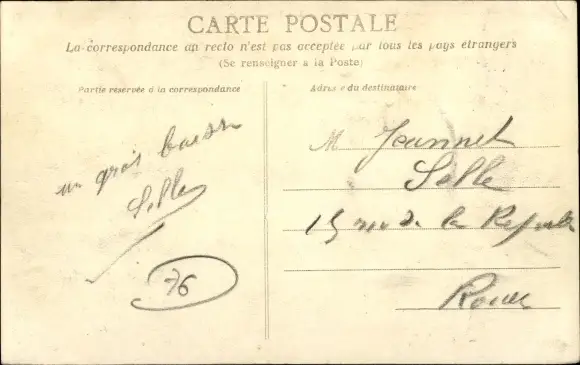 CARTE POSTALE
La correspondance au recto n'est pas acceptée par tous les pays étrangers
(Se renseigner à la Poste)
Partie réservée à la correspondance
Adresse du destinataire
un gros baiser
Selle
76
M Jeannet
Selle
15 rue de la Repub
Rouen